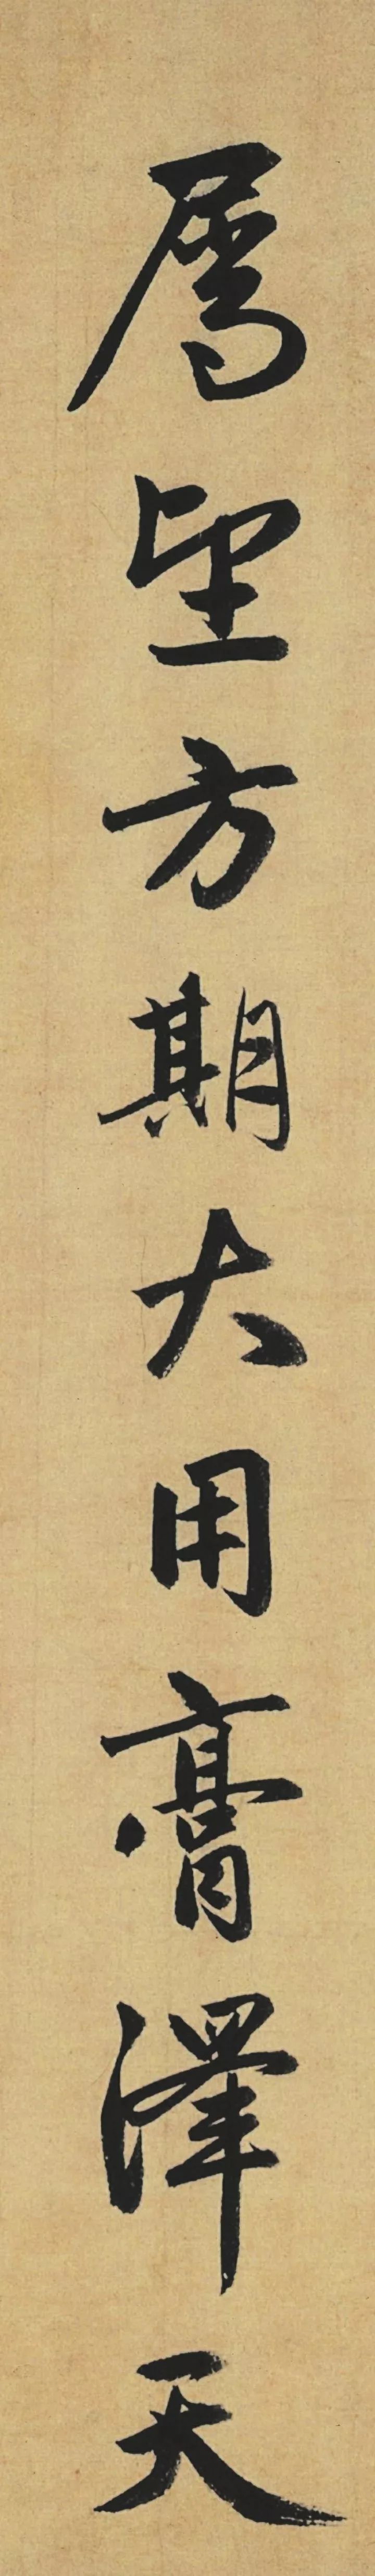 屬望方期大用膏澤天